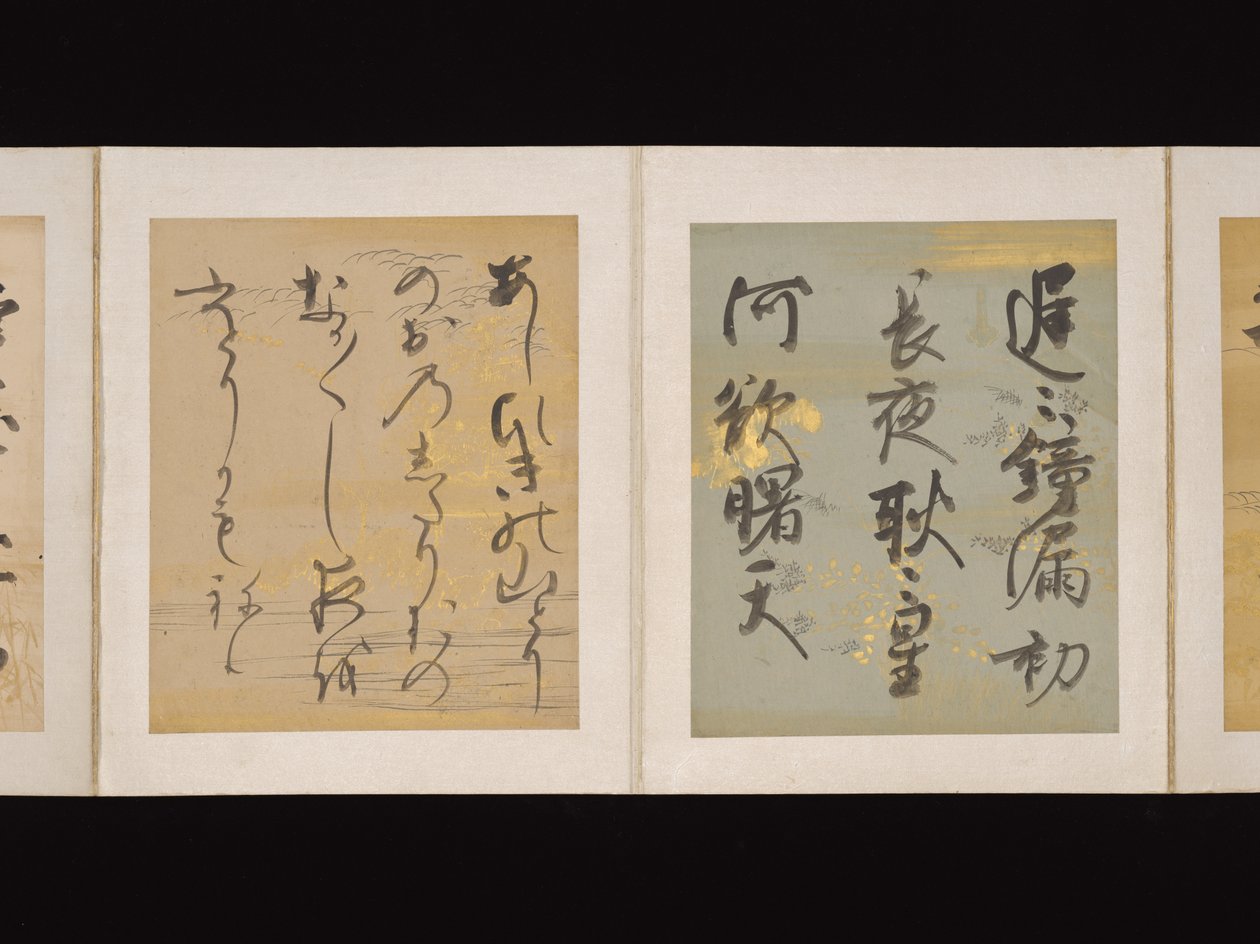 遅〻鐘漏初
長夜耿〻星
河欲曙天
あしひきの山とり
のおのしたりおの
なか〱し夜を
ひとりかもねむ